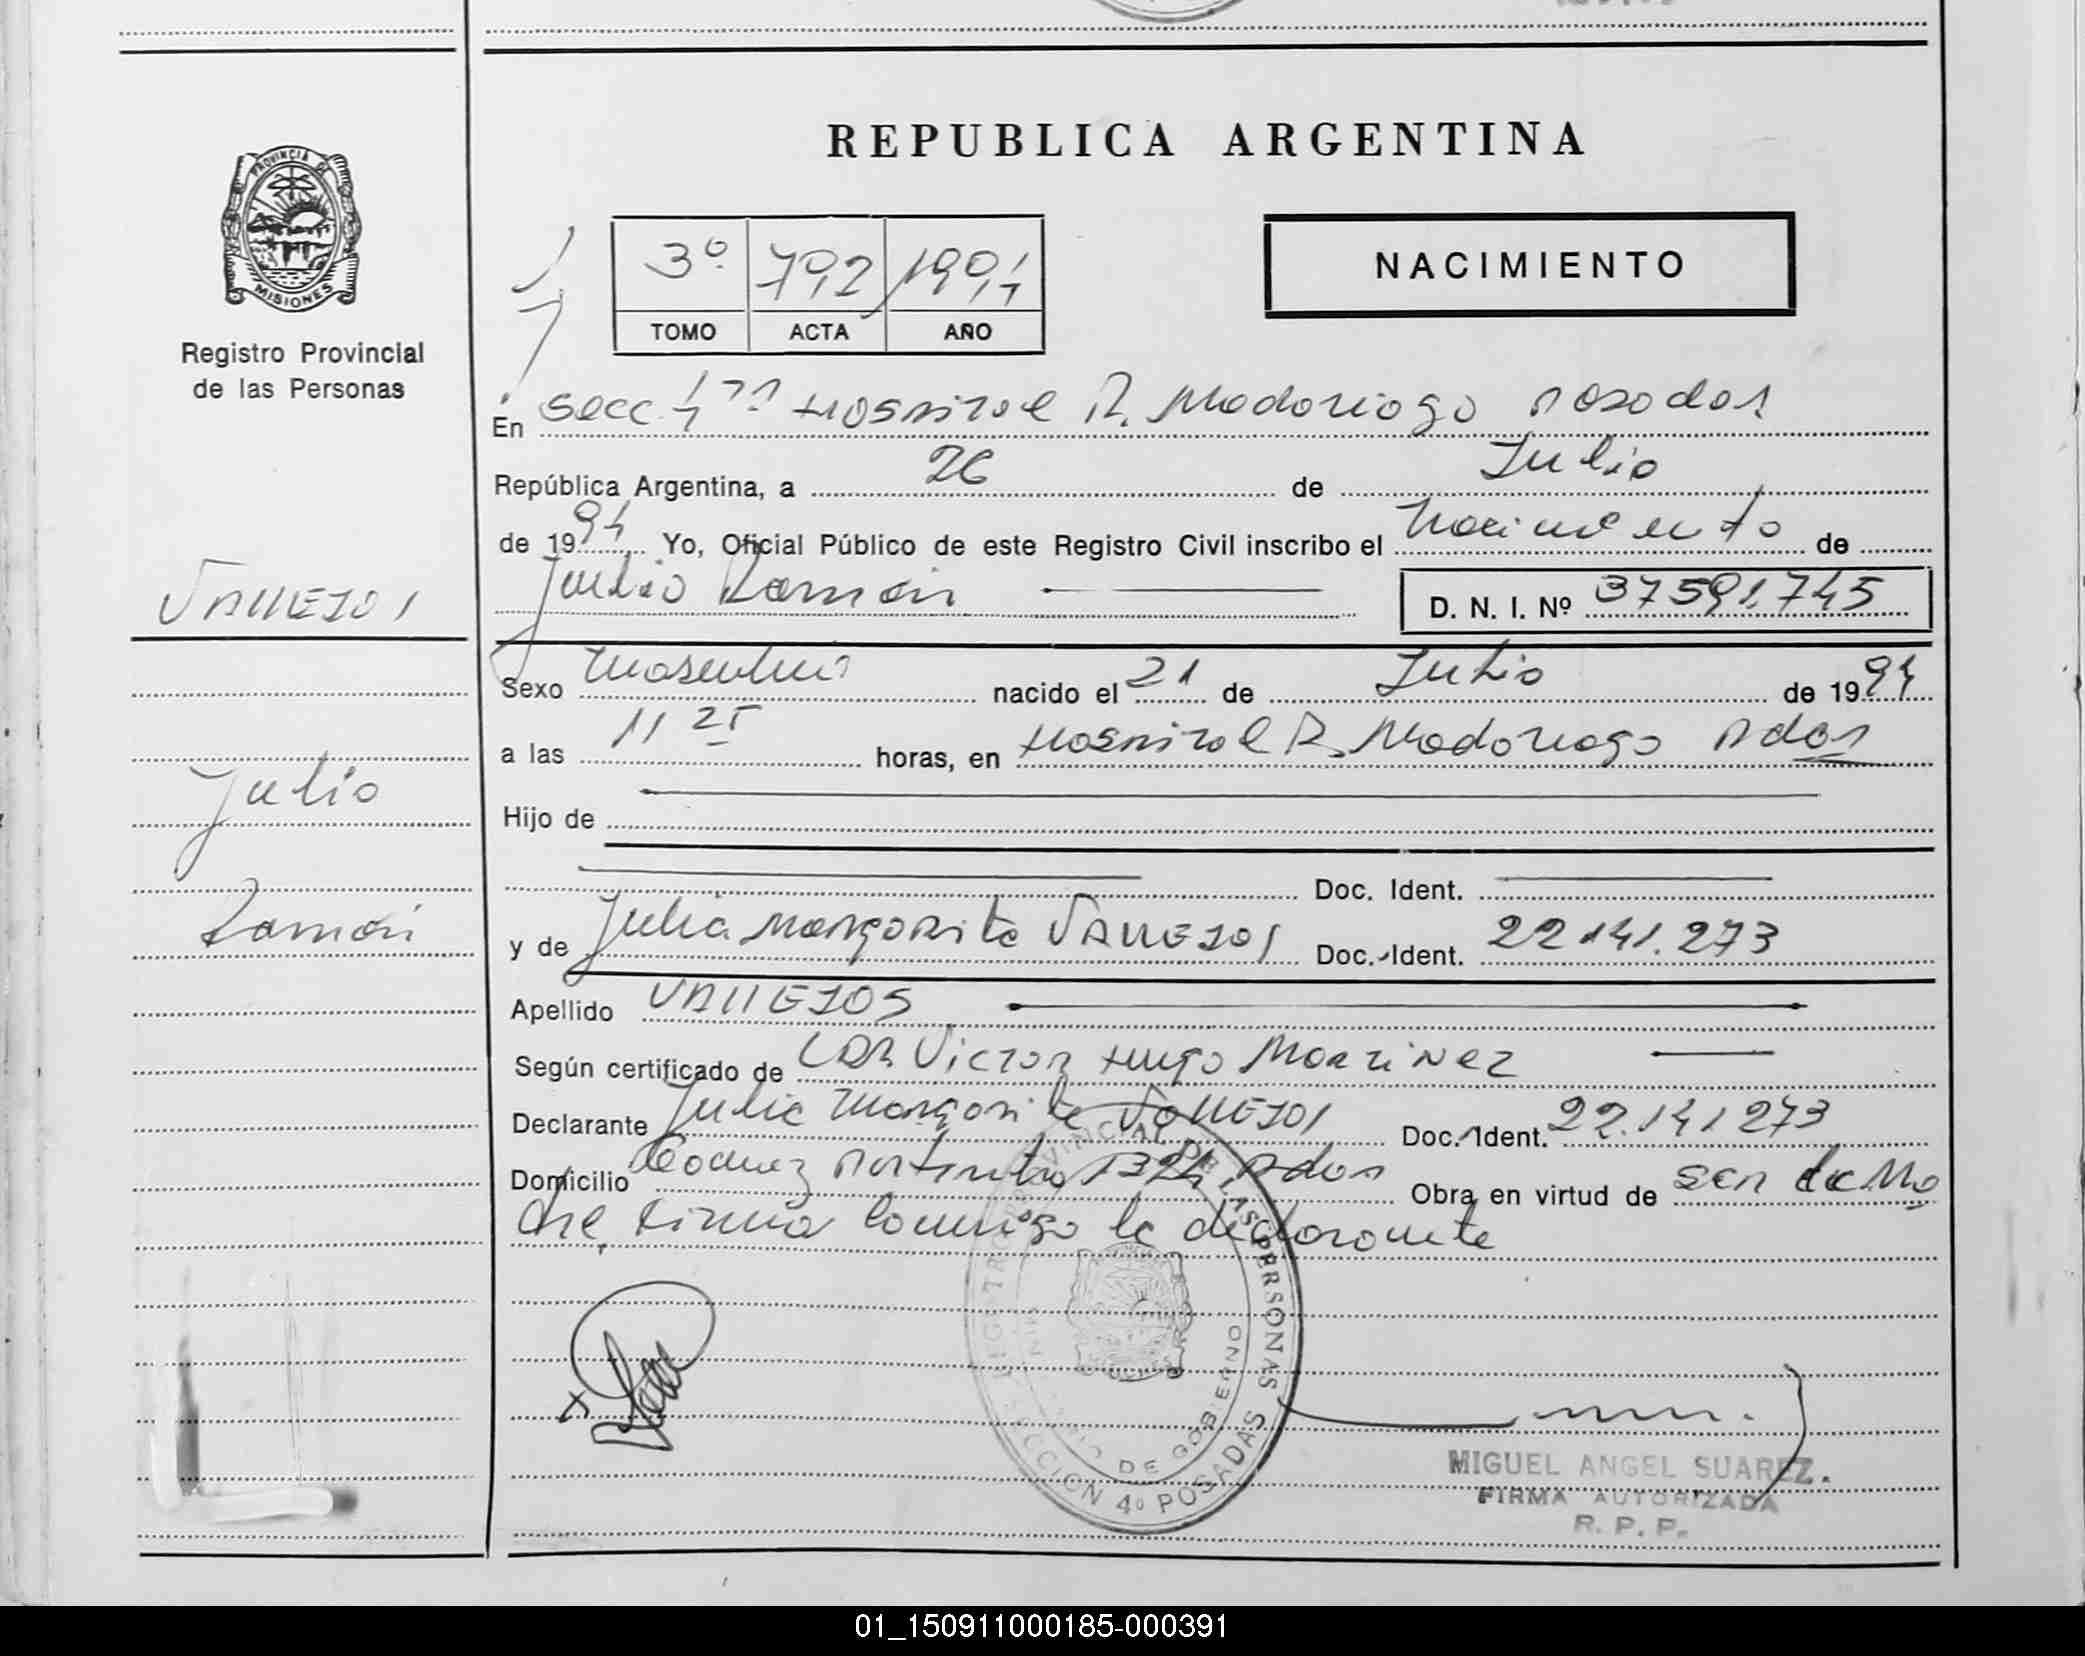 REPUBLICA ARGENTINA
PROVINCIA DE
MISIONES
Registro Provincial
de las Personas
3º 792 1994
TOMO ACTA AÑO
NACIMIENTO
En Secc 4ta Hospital R. Madariaga Posadas
República Argentina, a 26 de Julio
de 1994 Yo, Oficial Público de este Registro Civil inscribo el Nacimiento de
VALLEJOS
Julio Ramón D. N. I. Nº 37591.745
Sexo Masculino nacido el 21 de Julio de 1994
a las 11 25 horas, en Hospital R. Madariaga Pdas
Julio
Hijo de
Doc. Ident.
Ramón
y de Julia Margarita VALLEJOS Doc. Ident. 22.141.273
Apellido VALLEJOS
Según certificado de Victor Hugo Martinez
Declarante Julia Margarita VALLEJOS Doc. Ident. 22.141.273
Domicilio Pdas Obra en virtud de ser la Ma
dre, Firma conmigo la declarante
REGISTRO PROVINCIAL DE LAS PERSONAS
DE GOBIERNO
SECCION 4º POSADAS
MIGUEL ANGEL SUAREZ.
FIRMA AUTORIZADA
R. P. P.
01_150911000185-000391